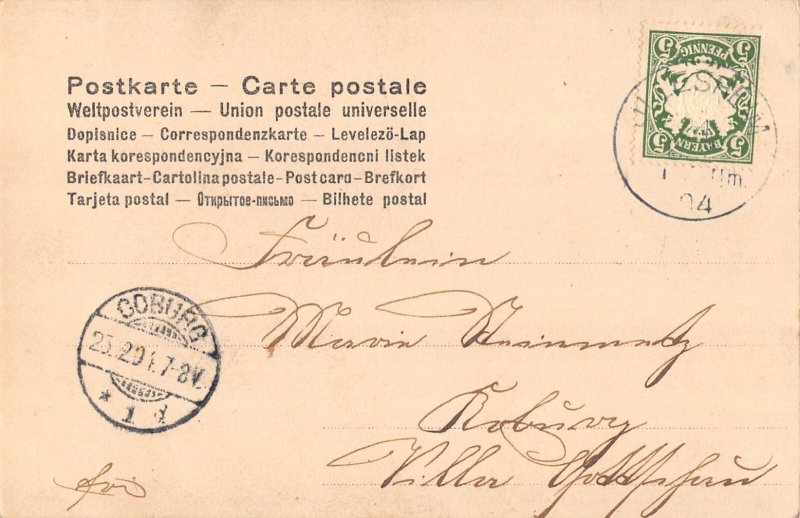 Postkarte – Carte postale
Weltpostverein – Union postale universelle
Dopisnice – Correspondenzkarte – Levelező-Lap
Karta korespondencyjna – Korespondencni listek
Briefkaart–Cartolina postale–Postcard–Brefkort
Tarjeta postal – Открытое-письмо – Bilhete postal
5 PFENNIG 5
5 BAYERN 5
04
Fräulein
Marie Steinmetz
Koburg
Villa Gottschau
frei
COBURG
7-8V.
* 1 d